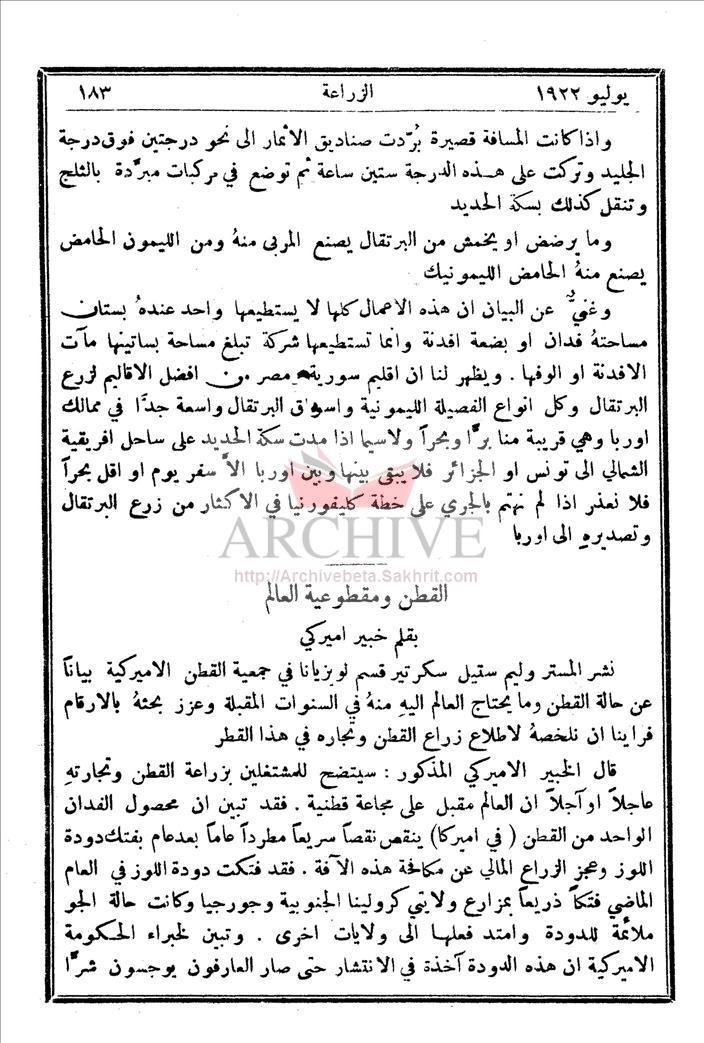 يوليو ١٩٢٢ الزراعة ١٨٣
واذا كانت المسافة قصيرة بُرّدت صناديق الاثمار الى نحو درجتين فوق درجة
الجليد وتركت على هذه الدرجة ستين ساعة ثم توضع في مركبات مبرَّدة بالثلج
وتنقل كذلك بسكة الحديد
وما يرضض او يخمش من البرتقال يصنع المربى منهُ ومن الليمون الحامض
يصنع منهُ الحامض الليمونيك
وغنيٌّ عن البيان ان هذه الاعمال كلها لا يستطيعها واحد عندهُ بستان
مساحتهُ فدان او بضعة افدنة وانما تستطيعها شركة تبلغ مساحة بساتينها مآت
الافدنة او الوفها . ويظهر لنا ان اقليم سورية ومصر من افضل الاقاليم لزرع
البرتقال وكل انواع الفصيلة الليمونية واسواق البرتقال واسعة جدًّا في ممالك
اوربا وهي قريبة منا برًّا وبحراً ولاسيما اذا مدت سكة الحديد على ساحل افريقية
الشمالي الى تونس او الجزائر فلا يبقى بينها وبين اوربا الاَّ سفر يوم او اقل بحراً
فلا نعذر اذا لم نهتم بالجري على خطة كليفورنيا في الاكثار من زرع البرتقال
وتصديرهِ الى اوربا
ARCHIVE
http://Archivebeta.Sakhrit.com
القطن ومقطوعية العالم
بقلم خبير اميركي
نشر المستر وليم ستيل سكرتير قسم لويزيانا في جمعية القطن الاميركية بياناً
عن حالة القطن وما يحتاج العالم اليهِ منهُ في السنوات المقبلة وعزز بحثهُ بالارقام
فراينا ان نلخصهُ لاطلاع زراع القطن وتجاره في هذا القطر
قال الخبير الاميركي المذكور : سيتضح للمشتغلين بزراعة القطن وتجارتهِ
عاجلاً او آجلاً ان العالم مقبل على مجاعة قطنية . فقد تبين ان محصول الفدان
الواحد من القطن ( في اميركا) ينقص نقصاً سريعاً مطرداً عاماً بعد عام بفتك دودة
اللوز وعجز الزراع المالي عن مكافحة هذه الآفة . فقد فتكت دودة اللوز في العام
الماضي فتكاً ذريعاً بمزارع ولايتي كرولينا الجنوبية وجورجيا وكانت حالة الجو
ملائمة للدودة وامتد فعلها الى ولايات اخرى . وتبين لخبراء الحكومة
الاميركية ان هذه الدودة آخذة في الانتشار حتى صار العارفون يوجسون شرًّا